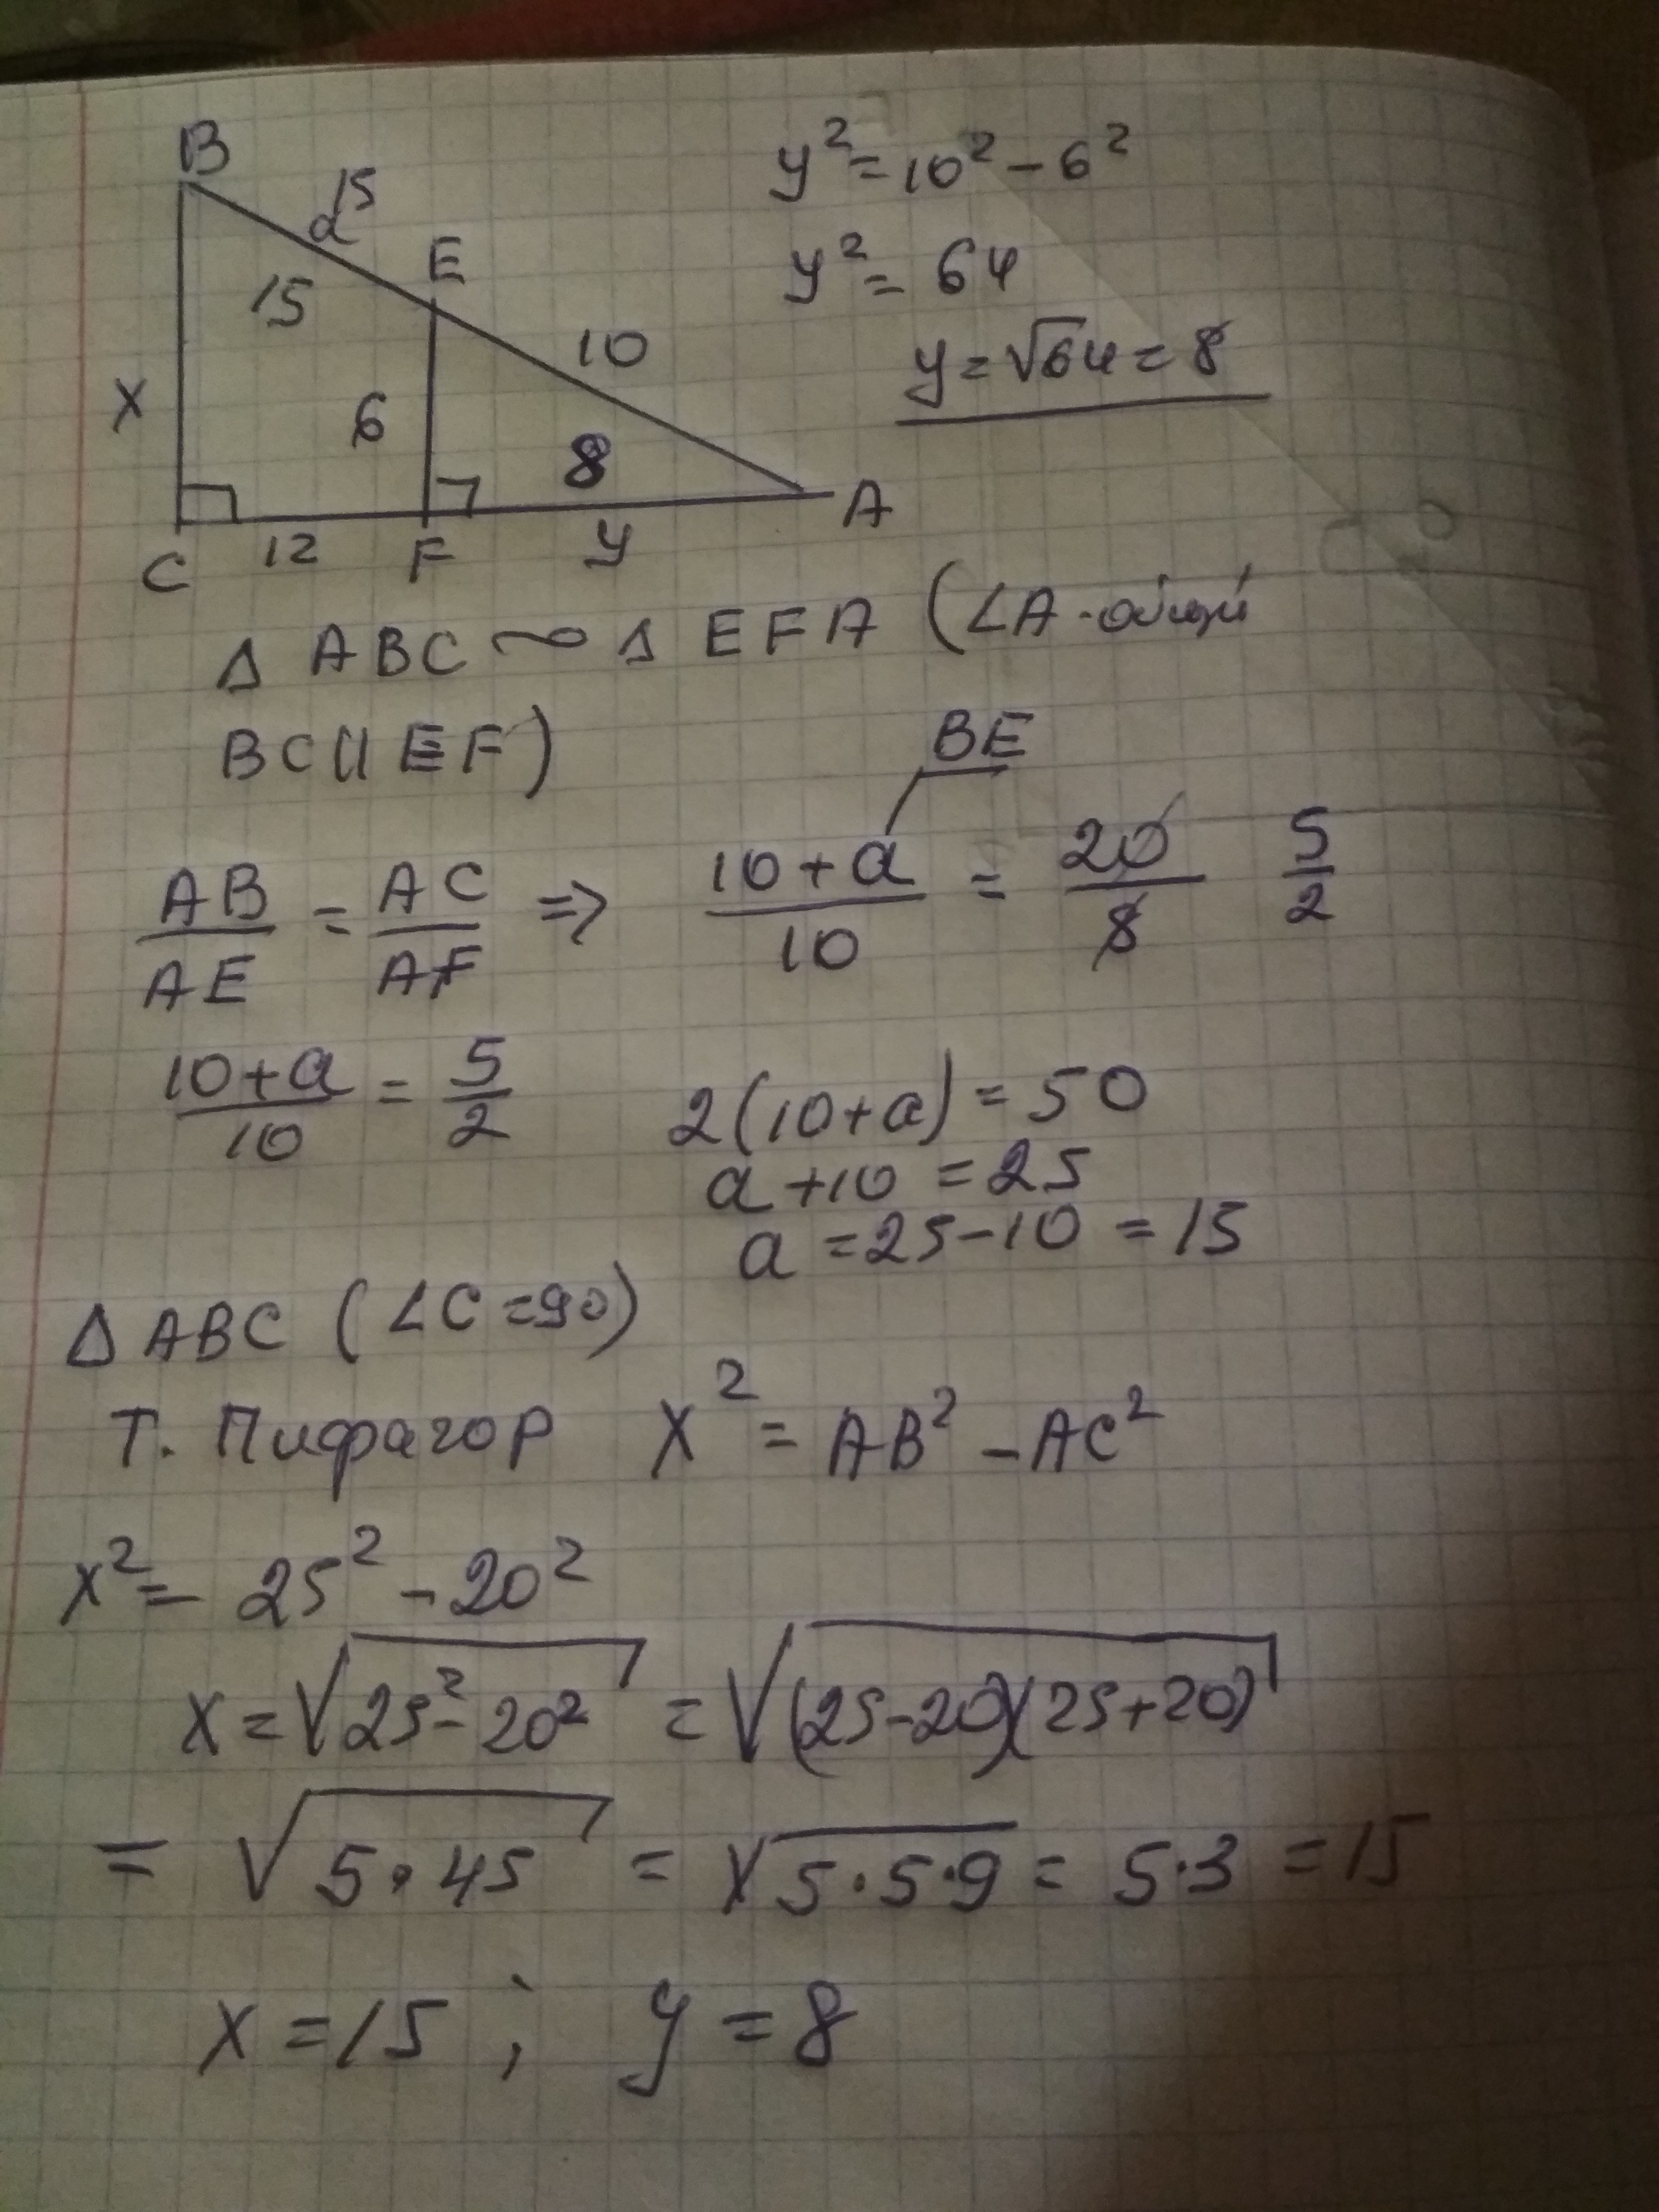 B
a 15
E
15
10
X
6
8
A
C
12
F
y
y² = 10² - 6²
y² = 64
y = √64 = 8
Δ ABC ∾ Δ EFA (∠A - общий
BC || EF)
BE
AB/AE = AC/AF => (10+a)/10 = 20/8 5/2
(10+a)/10 = 5/2
2(10+a) = 50
a + 10 = 25
a = 25 - 10 = 15
Δ ABC (∠C = 90)
Т. Пифагор X² = AB² - AC²
X² = 25² - 20²
X = √(25² - 20²) = √((25-20)(25+20))
= √(5·45) = √(5·5·9) = 5·3 = 15
X = 15 ; y = 8